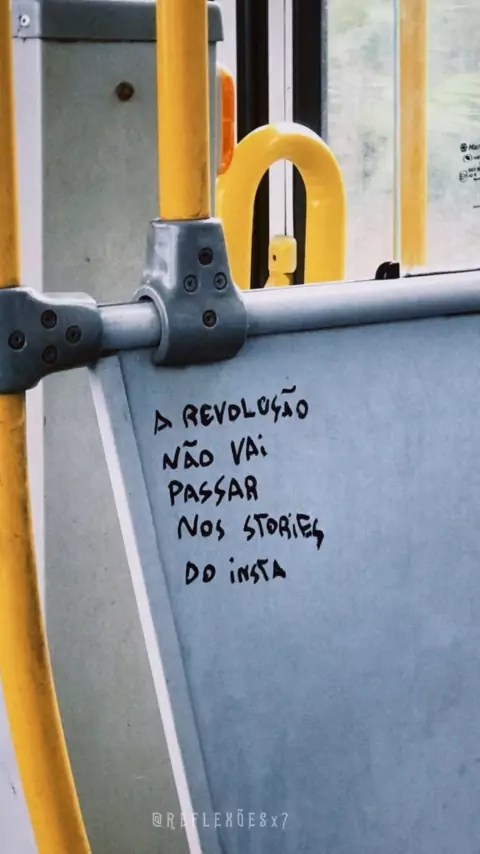 A REVOLUÇÃO
NÃO VAi
PASSAR
NOS STORiES
DO iNSTA
@REFLEXÕESx7